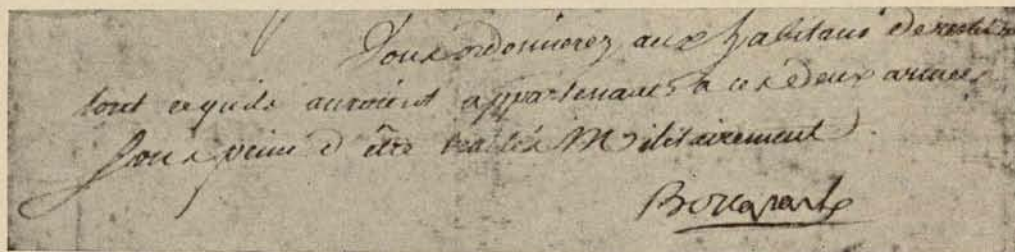 Vous ordonnerez aux habitans de
tout ce quils auroient appartenant à ces deux armées
sous peine d'être traités Militairement.
Bonaparte